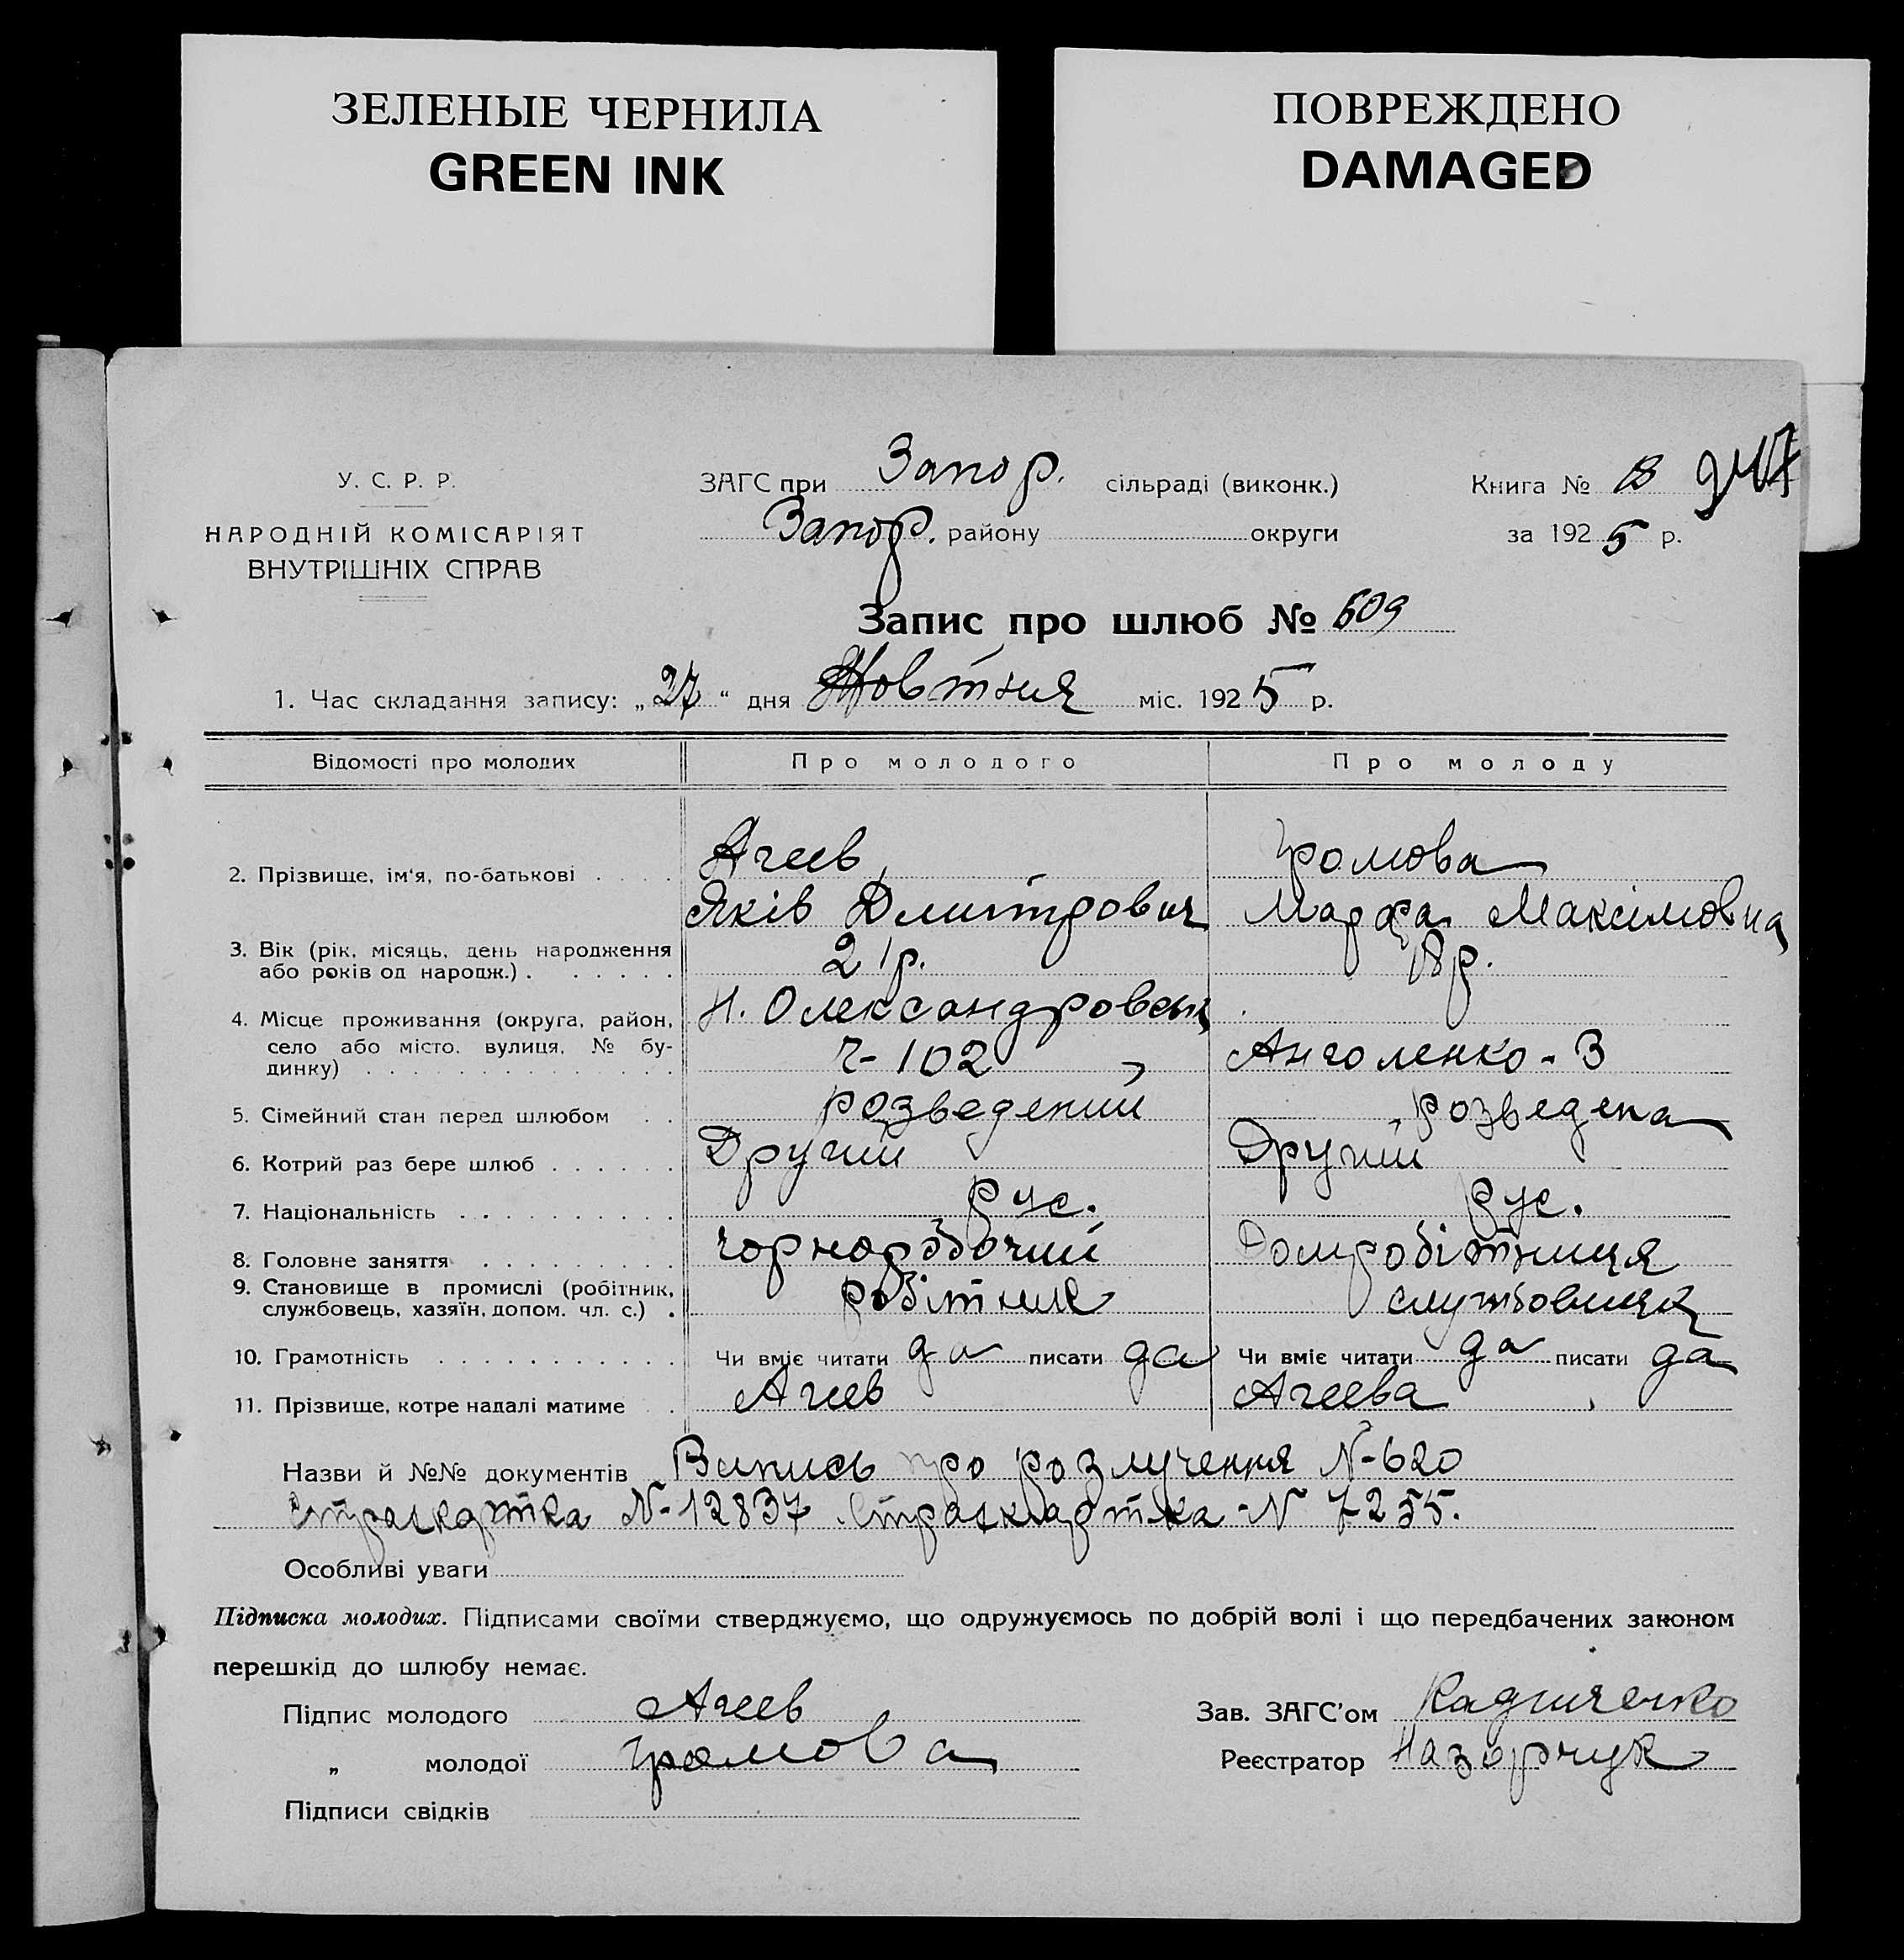 ЗЕЛЕНЫЕ ЧЕРНИЛА
GREEN INK
ПОВРЕЖДЕНО
DAMAGED
У. С. Р. Р.
НАРОДНІЙ КОМІСАРІЯТ
ВНУТРІШНІХ СПРАВ
ЗАГС при Запор. сільраді (виконк.)
Запор. району округи
Книга №
за 1925 р.
Запис про шлюб № 609
1. Час складання запису: „27“ дня Жовтня міс. 1925 р.
Відомості про молодих Про молодого Про молоду
2. Прізвище, ім'я, по-батькові Агеев Громова
Яків Дмитрович Марфа Максимовна
3. Вік (рік, місяць, день народження
або років од народж.) 21р. 18р.
4. Місце проживання (округа, район, Н. Олександровськ
село або місто, вулиця, № бу-
динку) 2-102 Анголенко-3
5. Сімейний стан перед шлюбом розведений розведена
6. Котрий раз бере шлюб Другий Другий
7. Національність рус. рус.
8. Головне заняття чорноробочий Домробітниця
9. Становище в промислі (робітник,
службовець, хазяїн, допом. чл. с.) робітник службовиця
10. Грамотність Чи вміє читати да писати да Чи вміє читати да писати да
11. Прізвище, котре надалі матиме Агеев Агеева
Назви й №№ документів Випись про розлучення N-620
Страхкартка N-12837 Страхкартка-N 7255.
Особливі уваги
Підписка молодих. Підписами своїми стверджуємо, що одружуємось по добрій волі і що передбачених законом
перешкід до шлюбу немає.
Підпис молодого Агеев
„ молодої Громова
Підписи свідків
Зав. ЗАГС'ом
Реєстратор Назорчук